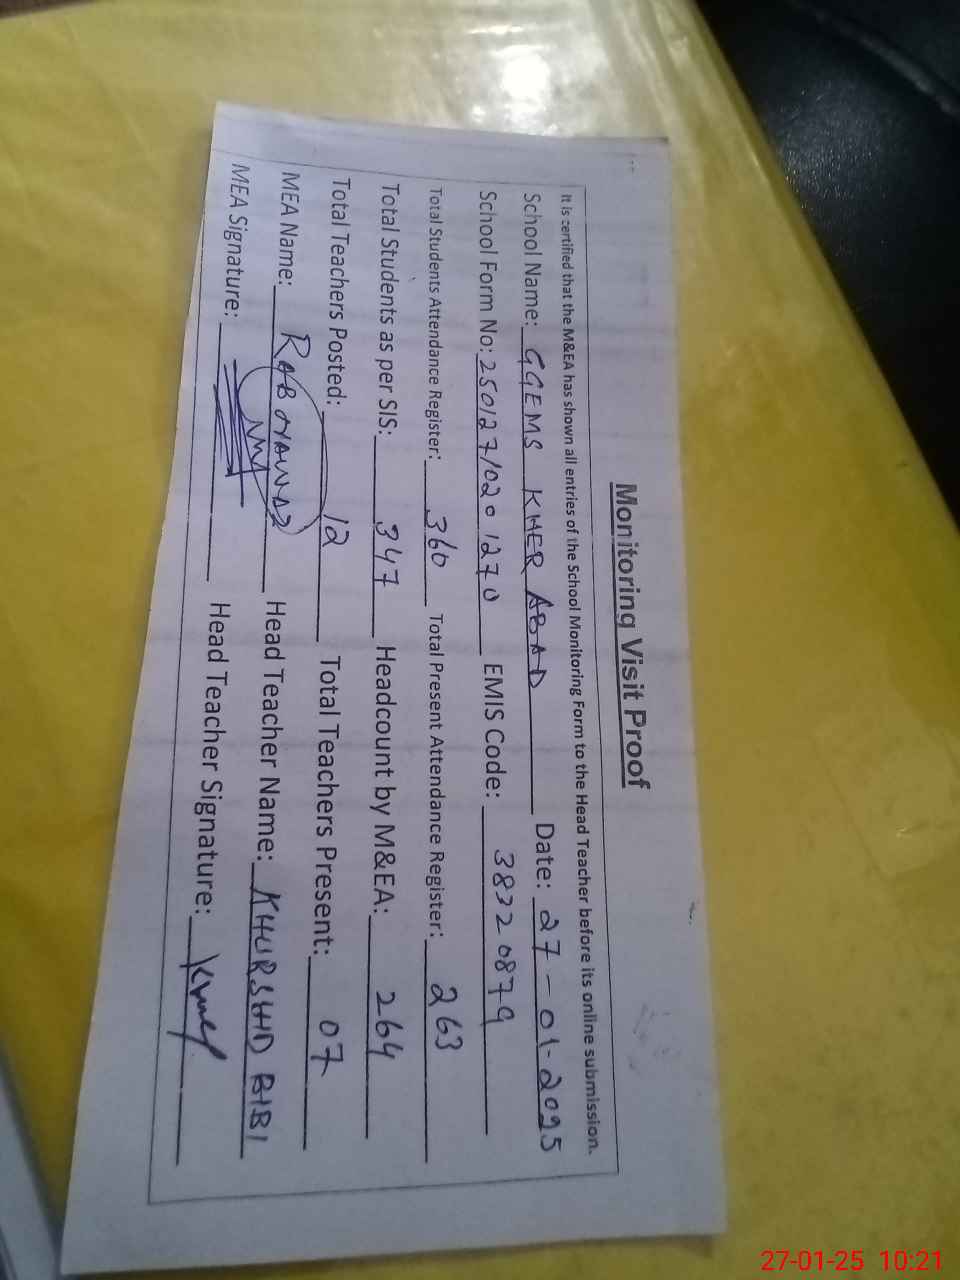 Monitoring Visit Proof
It is certified that the M&EA has shown all entries of the School Monitoring Form to the Head Teacher before its online submission.
School Name: GGEMS KHER ABAD Date: 27-01-2025
School Form No: 250127/020 1270 EMIS Code: 38320879
Total Students Attendance Register: 360 Total Present Attendance Register: 263
Total Students as per SIS: 347 Headcount by M&EA: 264
Total Teachers Posted: 12 Total Teachers Present: 07
MEA Name: RAB NAWAZ Head Teacher Name: KHURSHID BIBI
MEA Signature: Head Teacher Signature:
27-01-25 10:21